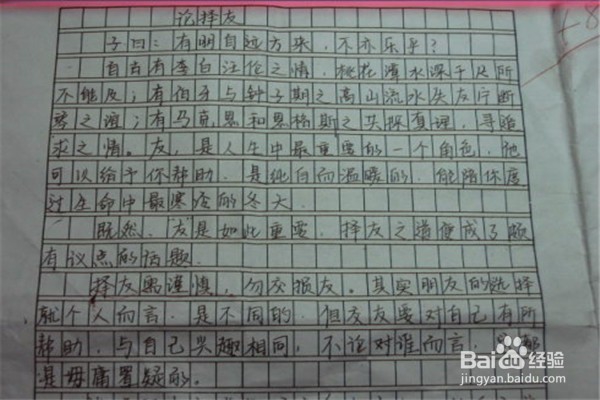 论择友
子曰：有朋自远方来，不亦乐乎？
自古有李白汪伦之情，桃花潭水深千尺所
不能及；有伯牙与钟子期之高山流水失友宁断
琴之谊；有马克思和恩格斯之共探真理，寻追
求之情。友，是人生中最重要的一个角色，他
可以给予你帮助，是纯白而温暖的，能陪你度
过生命中最寒冷的冬天。
既然，友是如此重要，择友之道便成了颇
有议点的话题。
择友需谨慎，勿交损友。其实朋友的选择
就个人而言，是不同的，但交友要对自己有所
帮助，与自己兴趣相同，不论对谁而言，都
是毋庸置疑的。
+8
Baidu百度经验
jingyan.baidu.com